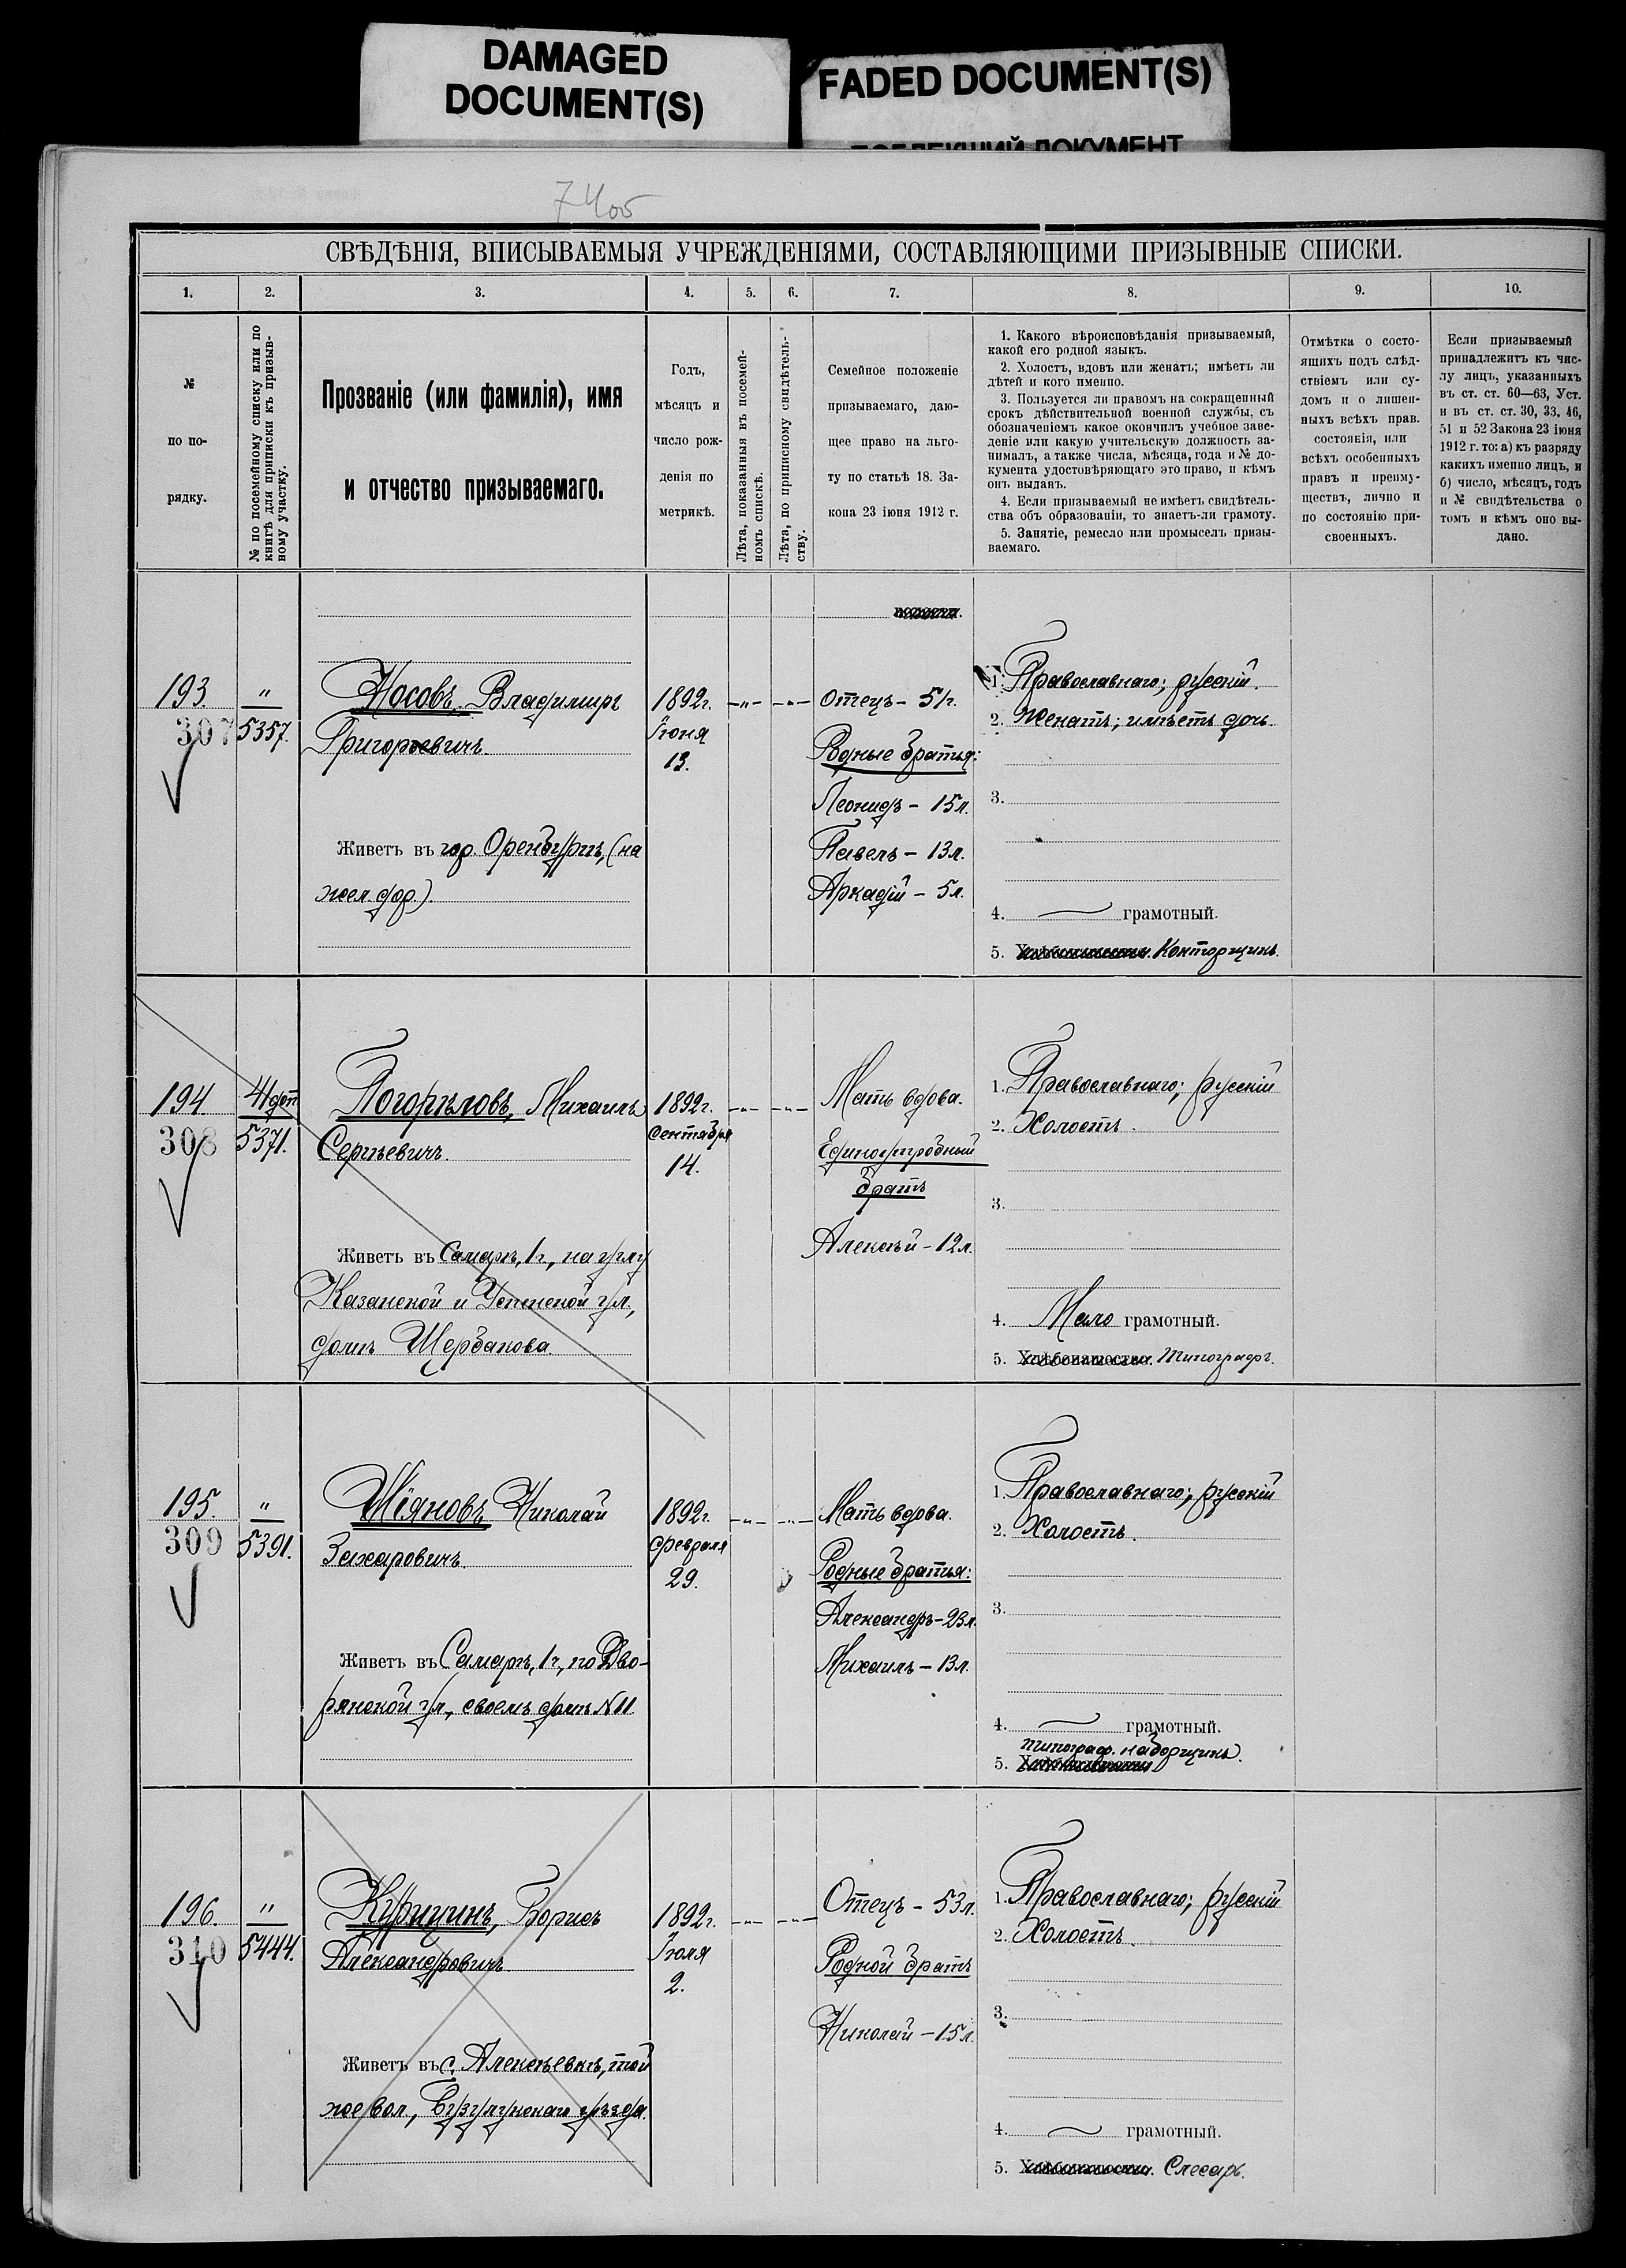 DAMAGED
DOCUMENT(S)
FADED DOCUMENT(S)
7405
СВѢДѢНІЯ, ВПИСЫВАЕМЫЯ УЧРЕЖДЕНІЯМИ, СОСТАВЛЯЮЩИМИ ПРИЗЫВНЫЕ СПИСКИ.
1. 2. 3. 4. 5. 6. 7. 8. 9. 10.
№
по по-
рядку.
№ по посемейному списку или по
книгѣ для приписки къ призыв-
ному участку.
Прозваніе (или фамилія), имя
и отчество призываемаго.
Годъ,
мѣсяцъ и
число рож-
денія по
метрикѣ.
Лѣта, показанныя въ посемей-
номъ спискѣ.
Лѣта, по приписному свидѣтель-
ству.
Семейное положеніе
призываемаго, даю-
щее право на льго-
ту по статьѣ 18. За-
кона 23 іюня 1912 г.
1. Какого вѣроисповѣданія призываемый,
какой его родной языкъ.
2. Холостъ, вдовъ или женатъ; имѣетъ ли
дѣтей и кого именно.
3. Пользуется ли правомъ на сокращенный
срокъ дѣйствительной военной службы, съ
обозначеніемъ какое окончилъ учебное заве-
деніе или какую учительскую должность за-
нималъ, а также числа, мѣсяца, года и № до-
кумента удостовѣряющаго это право, и кѣмъ
онъ выданъ.
4. Если призываемый не имѣетъ свидѣтель-
ства объ образованіи, то знаетъ-ли грамоту.
5. Занятіе, ремесло или промыселъ призы-
ваемаго.
Отмѣтка о состо-
ящихъ подъ слѣд-
ствіемъ или су-
домъ и о лишен-
ныхъ всѣхъ прав.
состоянія, или
всѣхъ особенныхъ
правъ и преиму-
ществъ, лично и
по состоянію при-
своенныхъ.
Если призываемый
принадлежитъ къ чис-
лу лицъ, указанныхъ
въ ст. ст. 60—63, Уст.
и въ ст. ст. 30, 33, 46,
51 и 52 Закона 23 іюня
1912 г. то: а) къ разряду
какихъ именно лицъ, и
б) число, мѣсяцъ, годъ
и № свидѣтельства о
томъ и кѣмъ оно вы-
дано.
193.
307
"
5357.
Носовъ Владиміръ
Григорьевичъ
Живетъ въ гор. Оренбургѣ, (на
жел. дор.)
1892 г.
Іюня
13.
-"- -"-
Отецъ - 51 г.
Родные братья:
Леонидъ - 15 л.
Павелъ - 13 л.
Аркадій - 5 л.
1. Православнаго; русскій.
2. Женатъ; имѣетъ дочь.
3.
4. грамотный.
5. Конторщикъ.
194
308
5371.
Погорѣловъ, Михаилъ
Сергѣевичъ.
Живетъ въ Самарѣ, 1 ч., на углу
Казанской и Успенской ул.,
домъ Щербакова.
1892 г.
Сентября
14.
-"- -"-
Мать вдова.
Единоутробный
братъ
Алексѣй - 12 л.
1. Православнаго; русскій
2. Холостъ.
3.
4. Мало грамотный.
5. Хлѣбопашество. Типографъ.
195.
309
"
5391.
Шіяновъ Николай
Захаровичъ.
Живетъ въ Самарѣ, 1 ч., по Дво-
рянской ул., своемъ домѣ N 11
1892 г.
февраля
29.
-"- -"-
Мать вдова.
Родные братья:
Александръ - 23 л.
Михаилъ - 13 л.
1. Православнаго; русскій
2. Холостъ.
3.
4. грамотный.
типограф. наборщикъ.
5.
196.
310
"
5444.
Курицинъ, Борисъ
Александровичъ
Живетъ въ с. Алексѣевкѣ, той
же вол., Бузулукскаго уѣзда.
1892 г.
Іюля
2.
-"- -"-
Отецъ - 53 л.
Родной братъ
Николай - 15 л.
1. Православнаго; русскій
2. Холостъ.
3.
4. грамотный.
5. Слесарь.